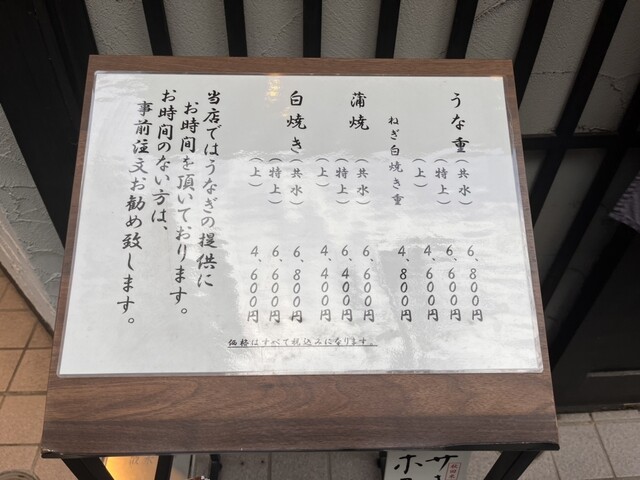 うな重（共水） 6、800円
（特上） 6、600円
（上） 4、600円
ねぎ白焼き重 4、800円
蒲焼（共水） 6、600円
（特上） 6、400円
（上） 4、400円
白焼き（共水） 6、800円
（特上） 6、600円
（上） 4、600円
当店ではうなぎの提供に
お時間を頂いております。
お時間のない方は、
事前注文お勧め致します。
価格はすべて税込みになります。
サ
ホ